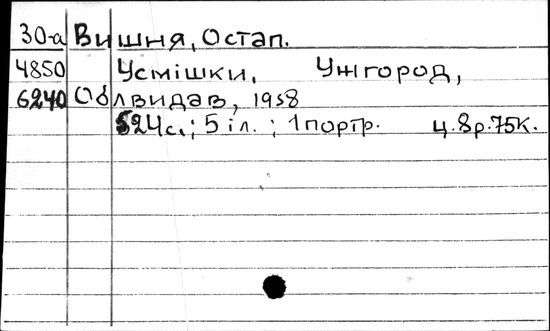 30-а Вишня, Остап.
4850 Усмішки. Ужгород,
6240 Облвидав, 1958
524с.; 5 іл.; 1 портр. ц. 8р.75к.